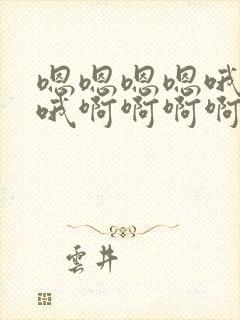 嗯嗯嗯嗯哦
哦啊啊啊啊
雲井